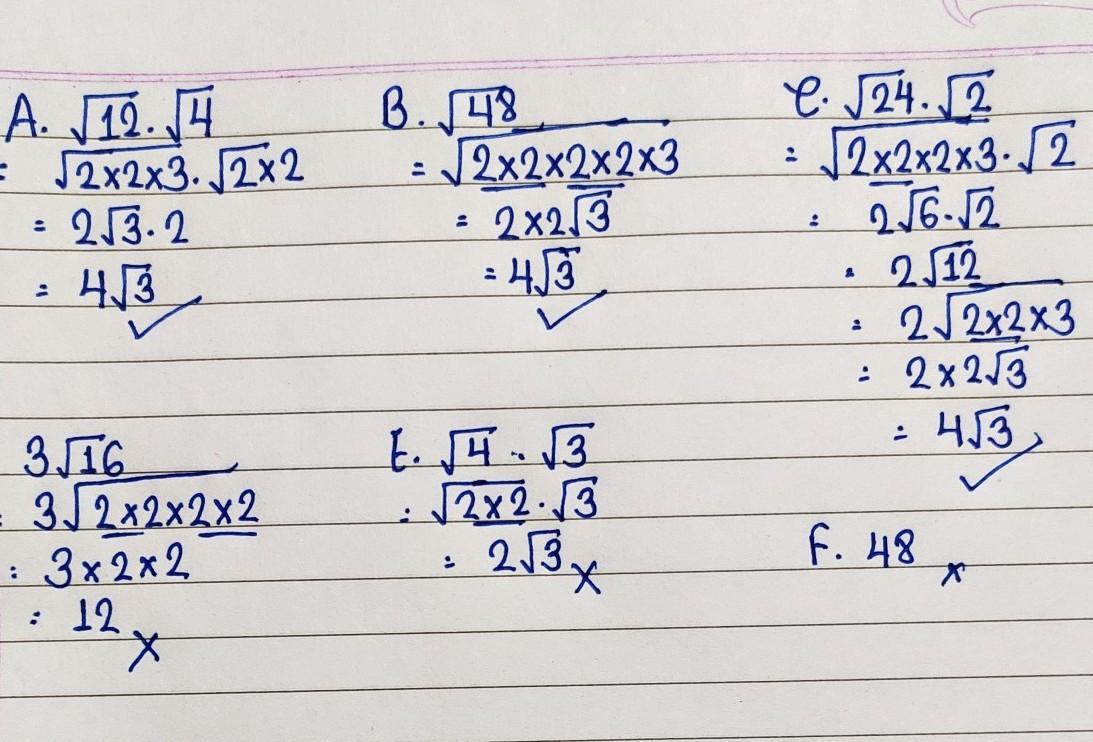 A. √12 . √4
= √2×2×3 . √2×2
= 2√3 . 2
= 4√3 ✓
B. √48
= √2×2×2×2×3
= 2×2√3
= 4√3 ✓
C. √24 . √2
= √2×2×2×3 . √2
= 2√6 . √2
= 2√12
= 2√2×2×3
= 2×2√3
= 4√3 ✓
3√16
: 3√2×2×2×2
: 3×2×2
: 12 ×
E. √4 . √3
: √2×2 . √3
= 2√3 ×
F. 48 ×